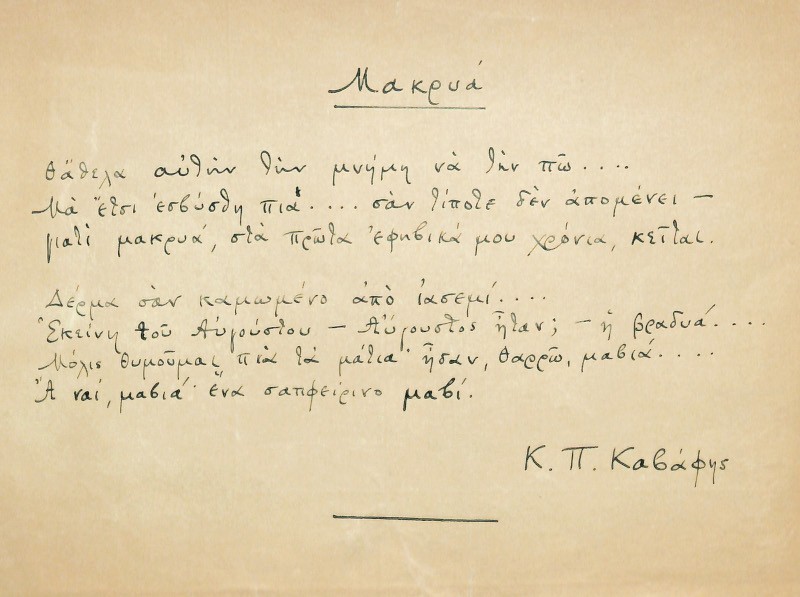 Μακρυά
θἄθελα αὐτὴν τὴν μνήμη νὰ τὴν πῶ....
Μὰ ἔτσι ἐσβύσθη πιά.... σὰν τίποτε δὲν ἀπομένει —
γιατὶ μακρυά, στὰ πρῶτα ἐφηβικά μου χρόνια, κεῖται.
Δέρμα σὰν καμωμένο ἀπὸ ἰασεμί....
Ἐκείνη τοῦ Αὐγούστου — Αὔγουστος ἦταν; — ἡ βραδυά....
Μόλις θυμοῦμαι πιὰ τὰ μάτια· ἦσαν, θαρρῶ, μαβιά....
Ἄ ναί, μαβιά· ἕνα σαπφείρινο μαβί.
Κ. Π. Καβάφης